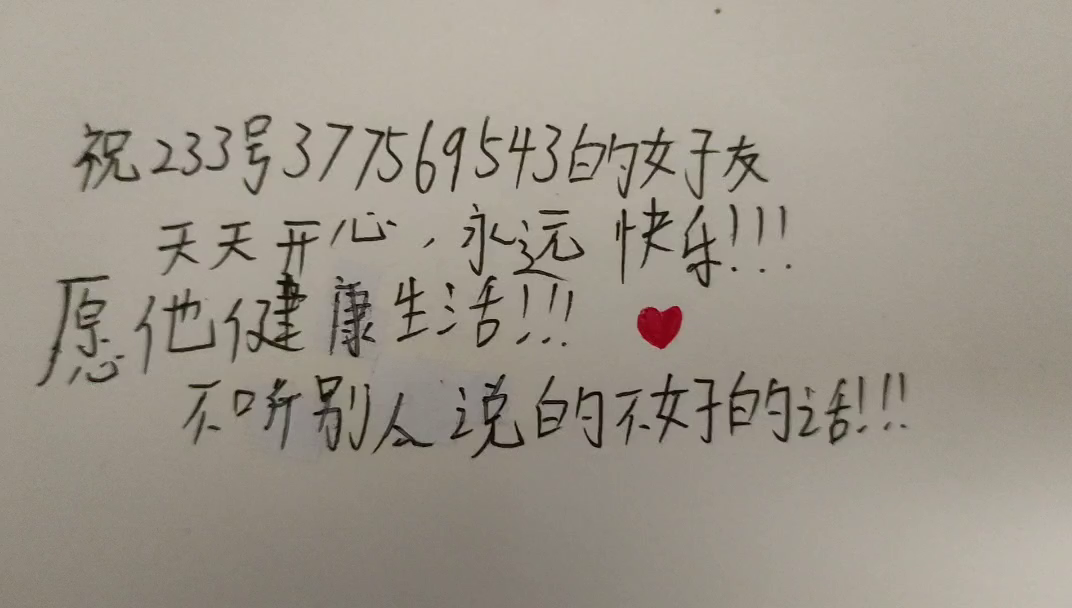 祝233号377569543的女子友
天天开心,永远快乐!!!
愿他健康生活!!!
不听别人说的不好的话!!!